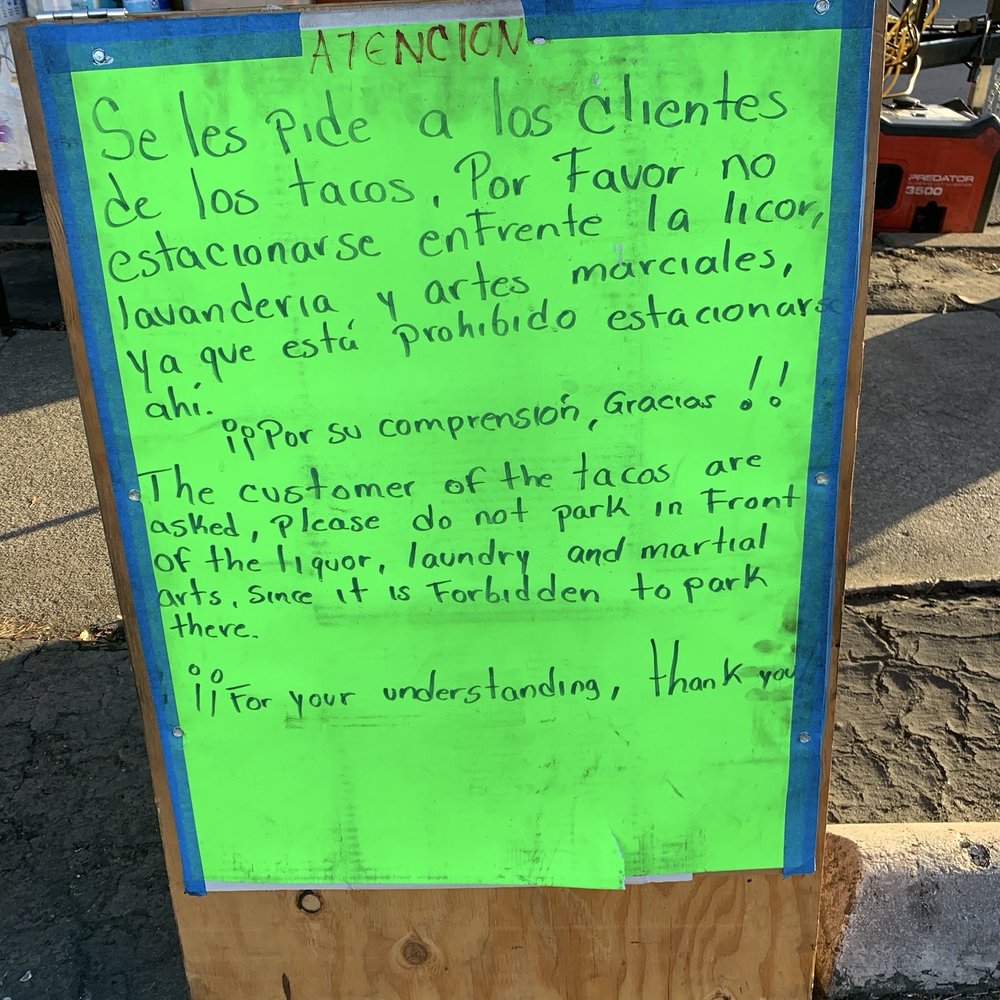 ATENCION
Se les pide a los clientes
de los tacos, Por Favor no
estacionarse enfrente la licor,
lavanderia y artes marciales,
Ya que está prohibido estacionarse
ahí.
¡¡Por su comprensión, Gracias !!
The customer of the tacos are
asked, please do not park in Front
of the liquor, laundry and martial
arts, since it is Forbidden to park
there.
¡¡For your understanding, thank you
PREDATOR
3500